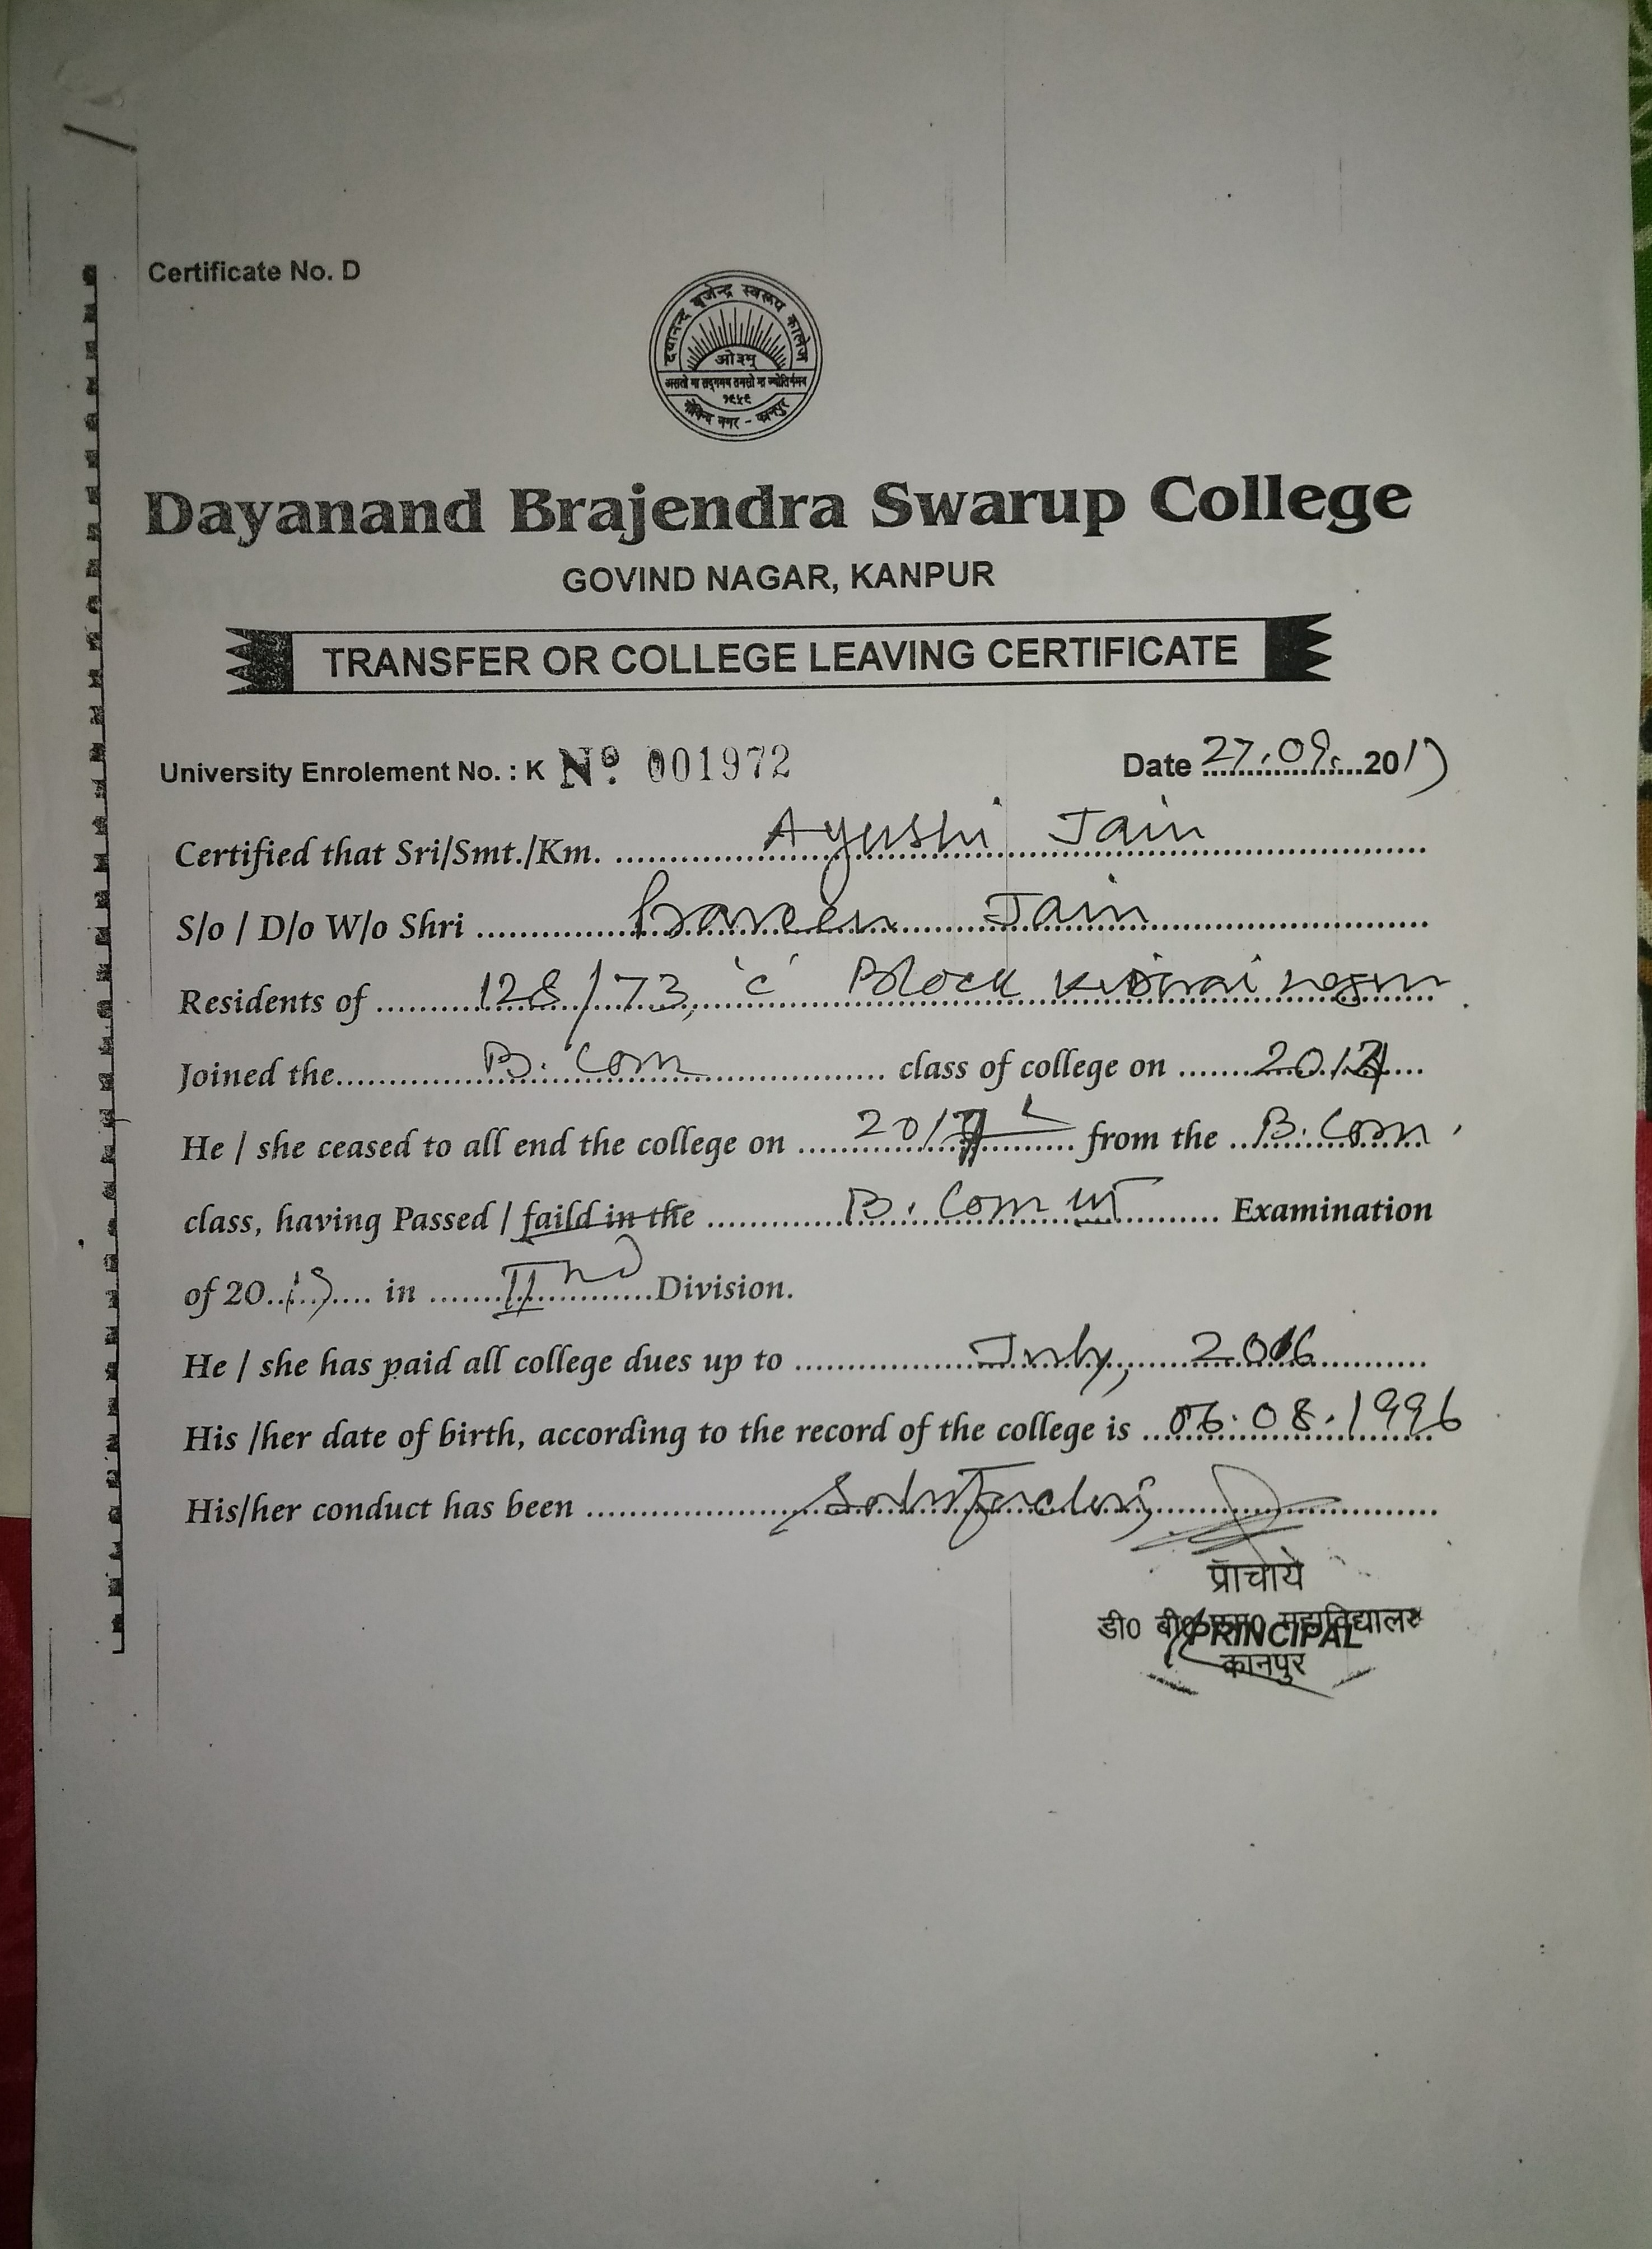 Certificate No. D
दयानन्द बृजेन्द्र स्वरूप कालेज
ओ३म्
असतो मा सद्गमय तमसो मा ज्योतिर्गमय
१९५९
गोविन्द नगर - कानपुर
Dayanand Brajendra Swarup College
GOVIND NAGAR, KANPUR
TRANSFER OR COLLEGE LEAVING CERTIFICATE
University Enrolement No. : K No. 001972 Date 27.09.2017
Certified that Sri/Smt./Km. Ayushi Jain
S/o / D/o W/o Shri Praveen Jain
Residents of 128/73, 'c' Block Kidwai nagar
Joined the B. Com class of college on 2014
He / she ceased to all end the college on 2017 from the B. Com
class, having Passed / faild in the B. Com III Examination
of 20 17 in IInd Division.
He / she has paid all college dues up to July, 2016
His /her date of birth, according to the record of the college is 06.08.1996
His/her conduct has been Satisfactory
प्राचार्य
डी0 बी0 एस0 महाविद्यालय
PRINCIPAL
कानपुर